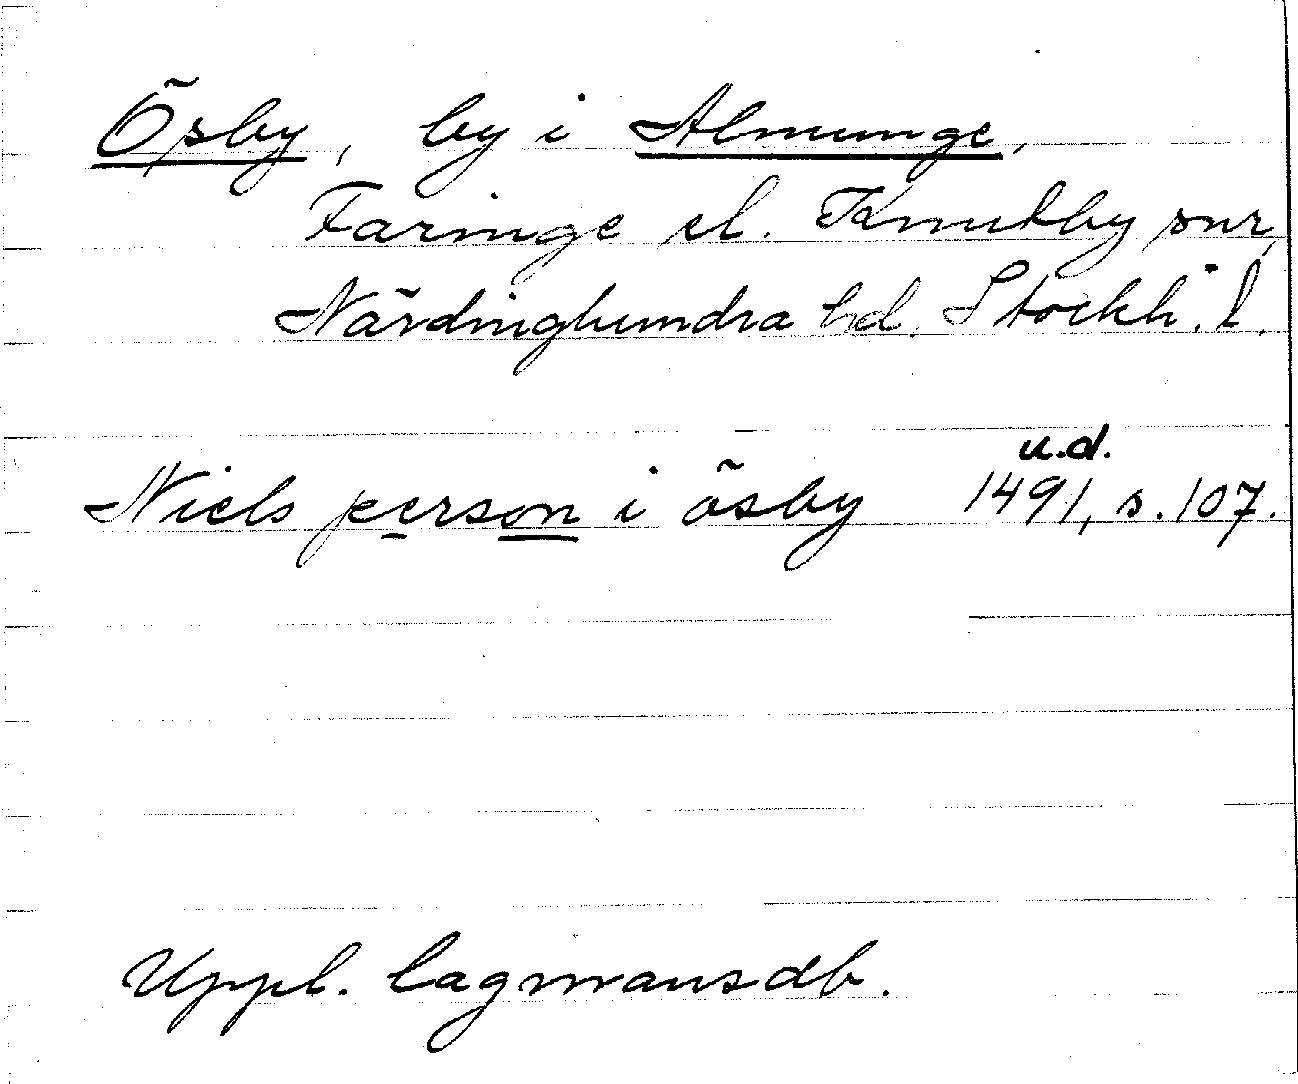 Ösby, by i Almunge,
Faringe el. Knutby snr,
Närdinghundra hd. Stockh. l.
u.d.
Niels person i ösby 1491, s. 107.
Uppl. lagmansdb.